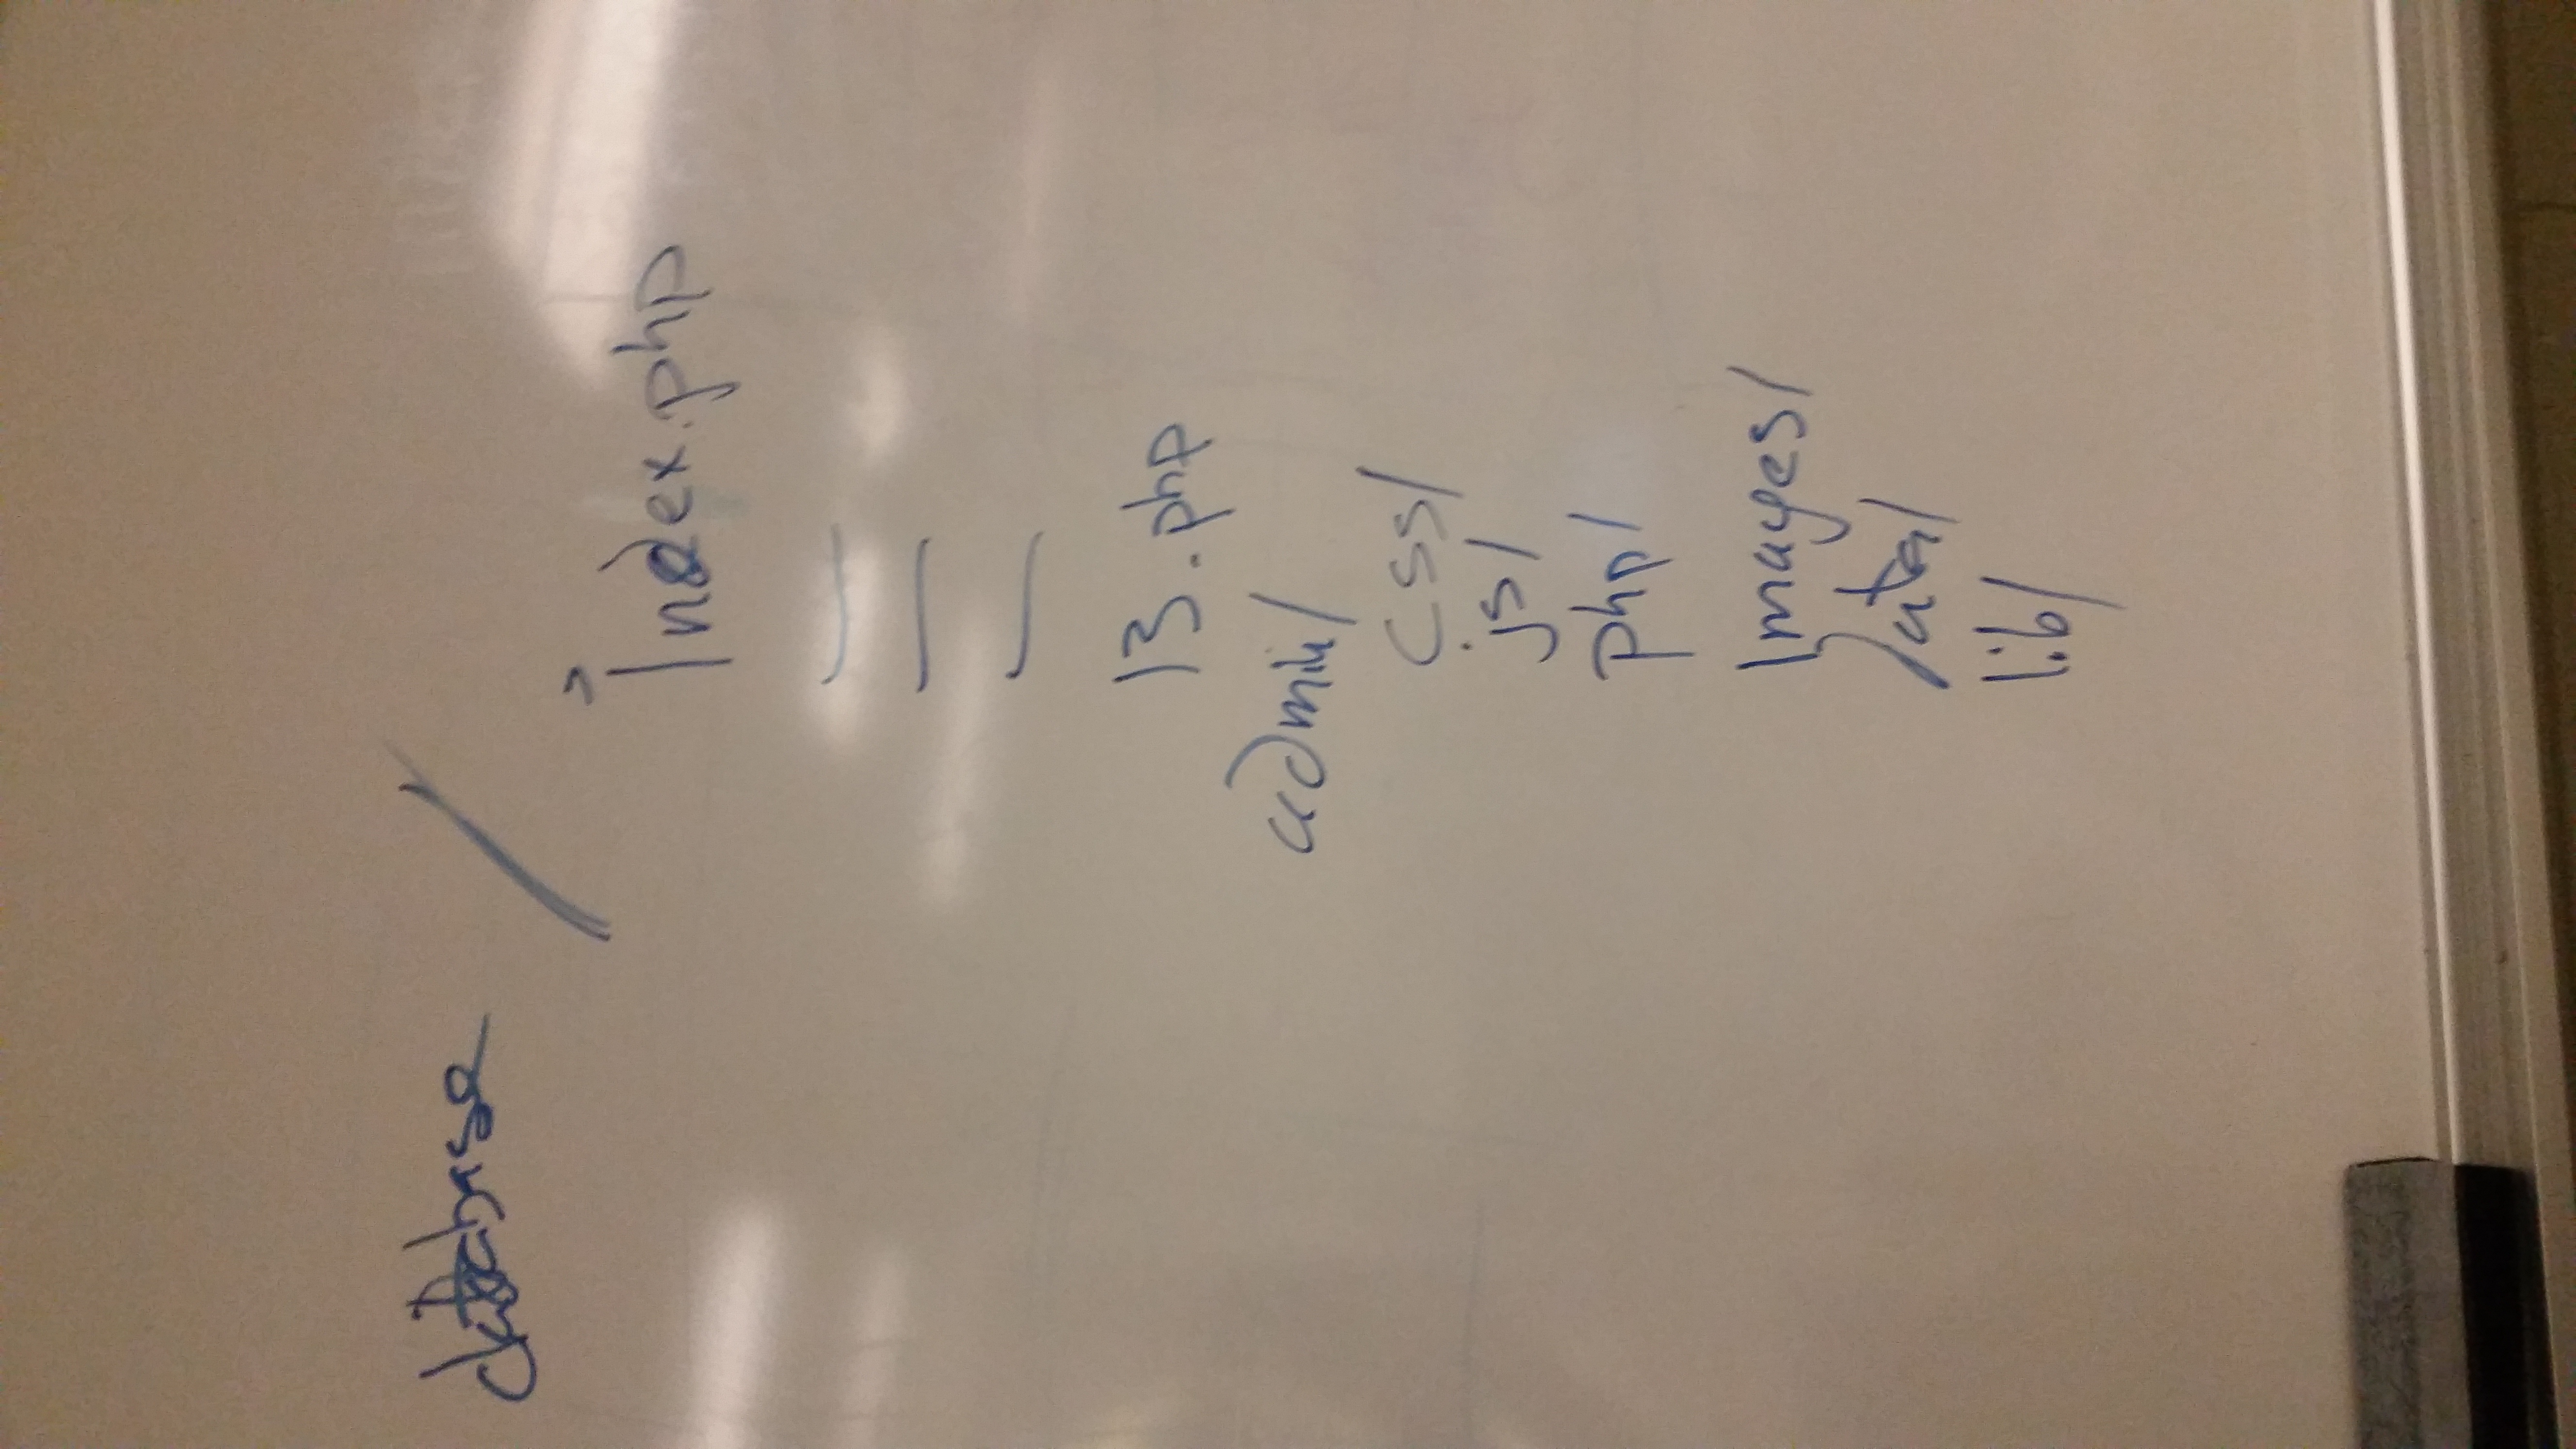 database /
index.php
—
—
—
13.php
admin/
css/
js/
php/
images/
data/
lib/